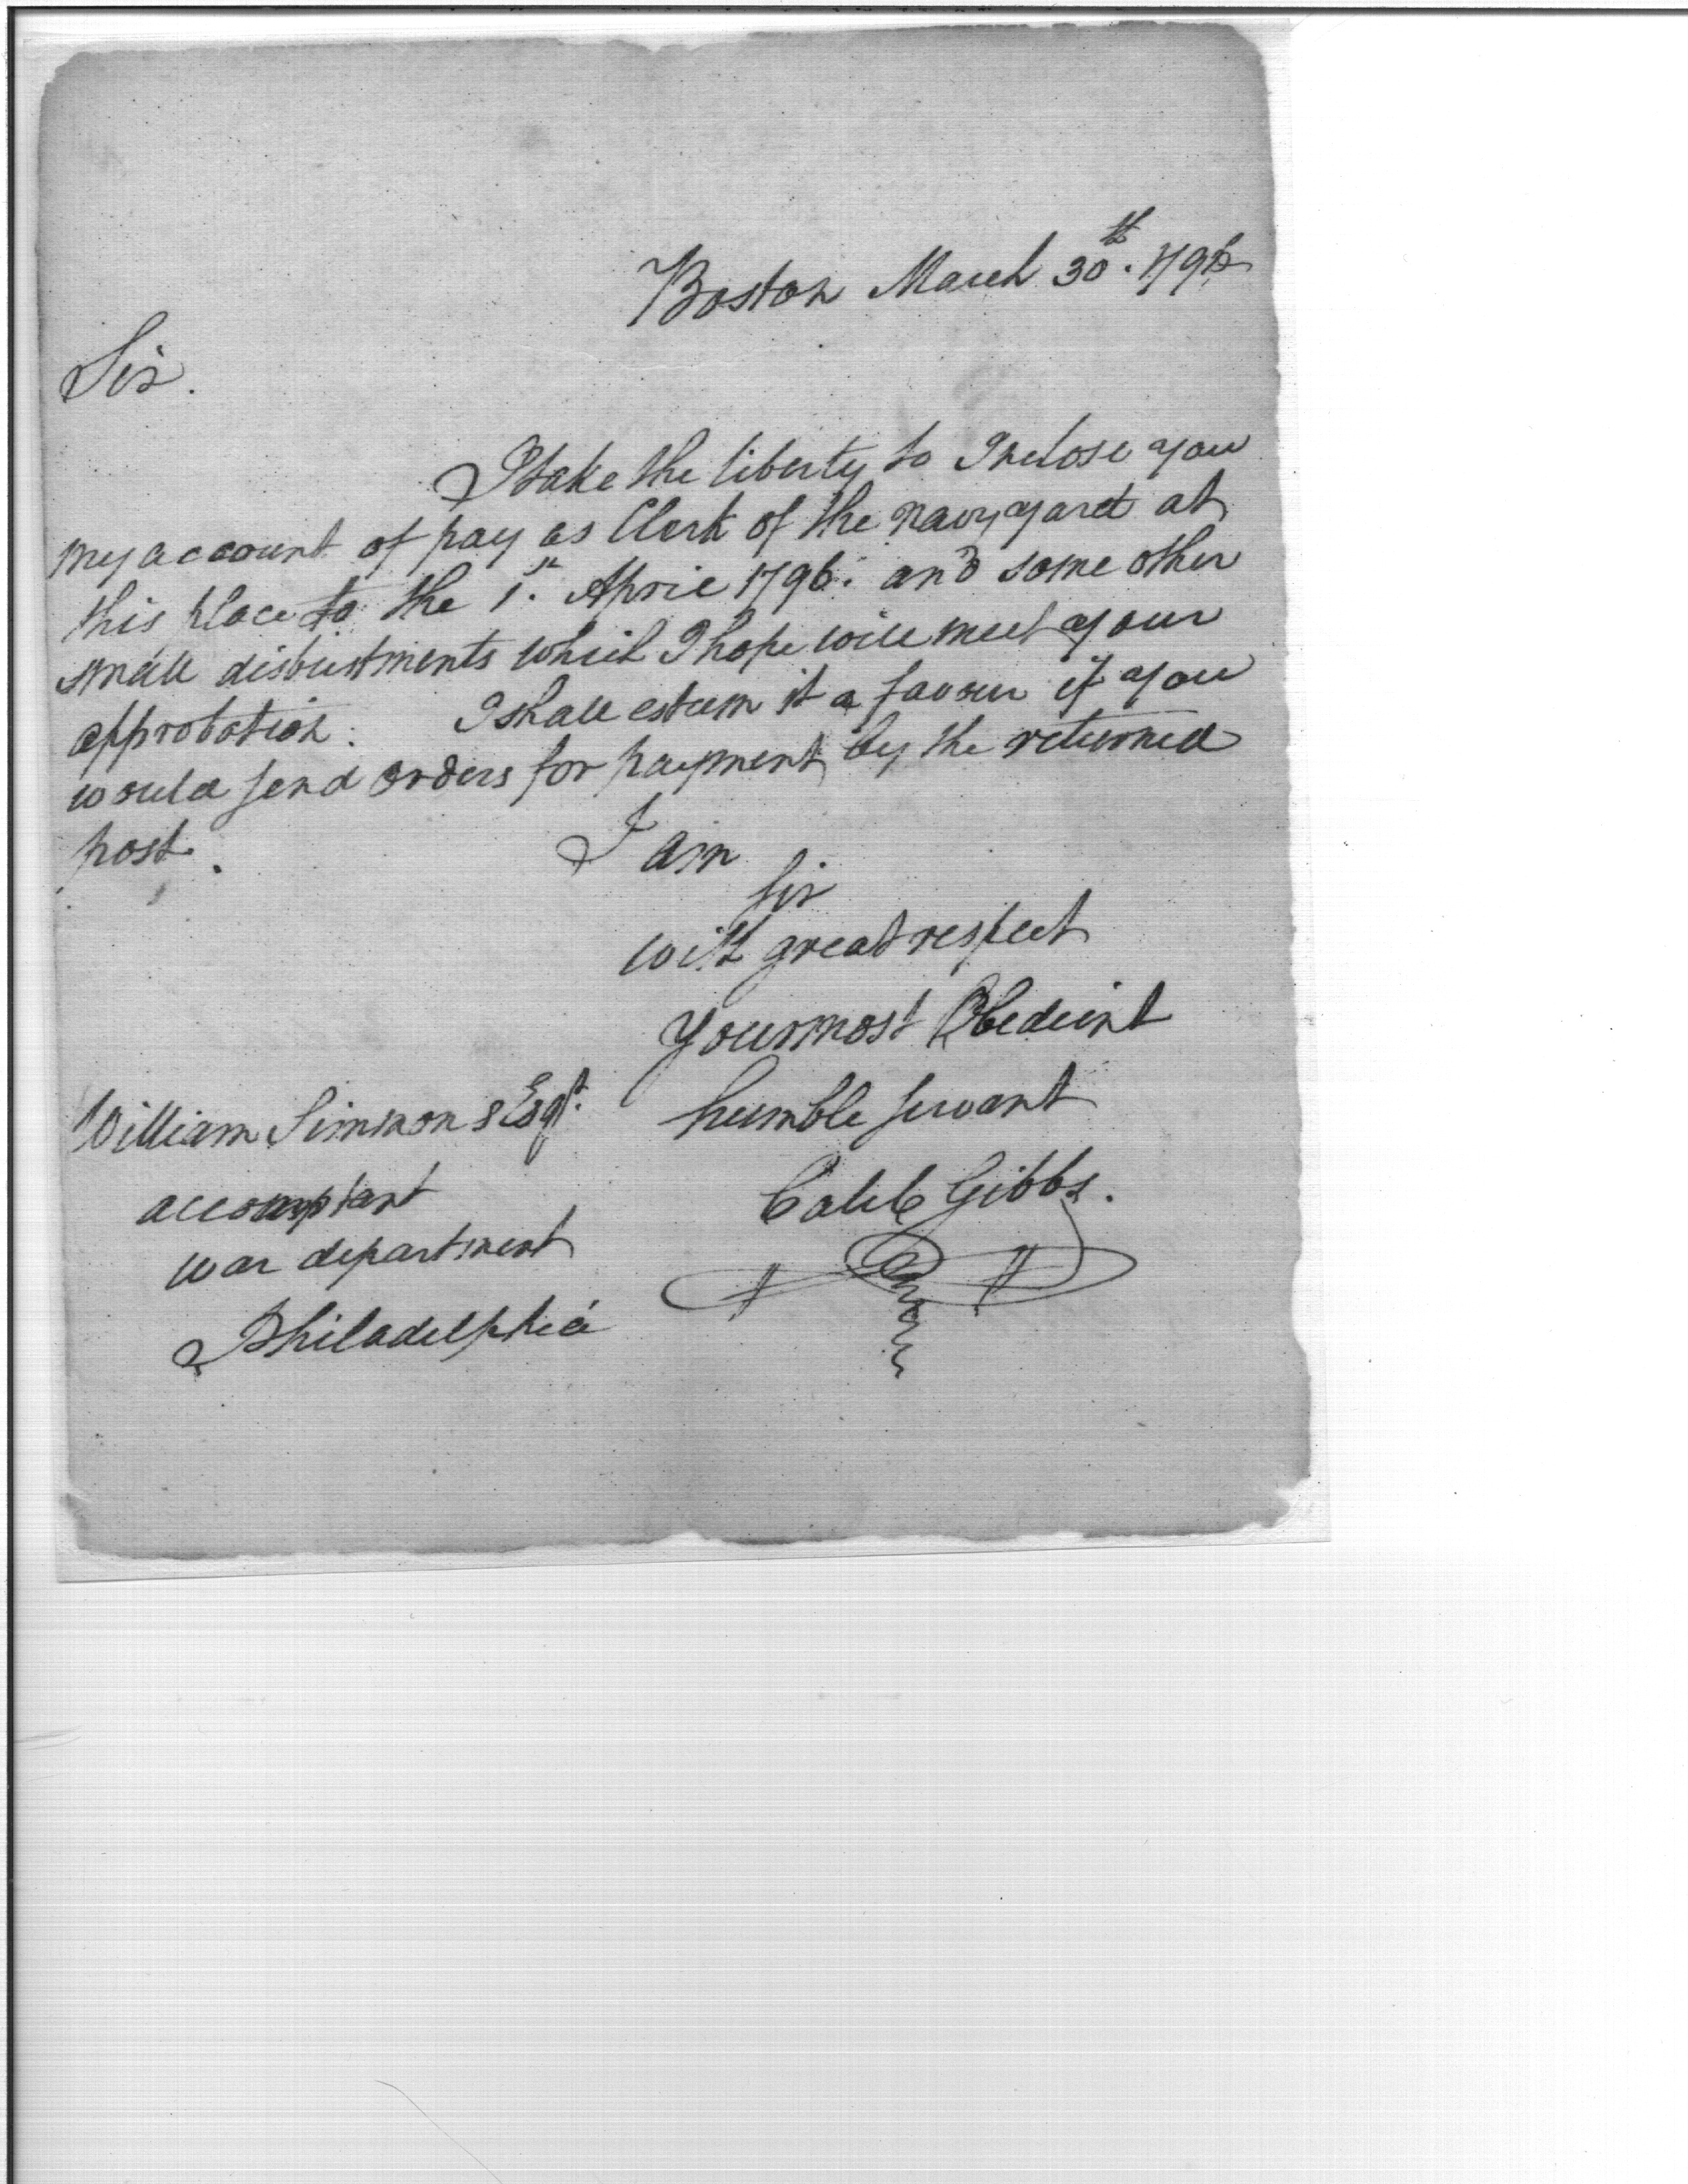 Boston March 30th. 1796
Sir.
I take the liberty to Inclose you
my account of pay as Clerk of the navy yard at
this place to the 1st. April 1796. and some other
small disbustments which I hope will meet your
approbation. I shall esteem it a favour if you
would send orders for payment by the returned
post.
I am
Sir
with great respect
Your most Obedient
humble servant
Caleb Gibbs.
William Simmons Esqr.
accomptant
war department
Philadelphia